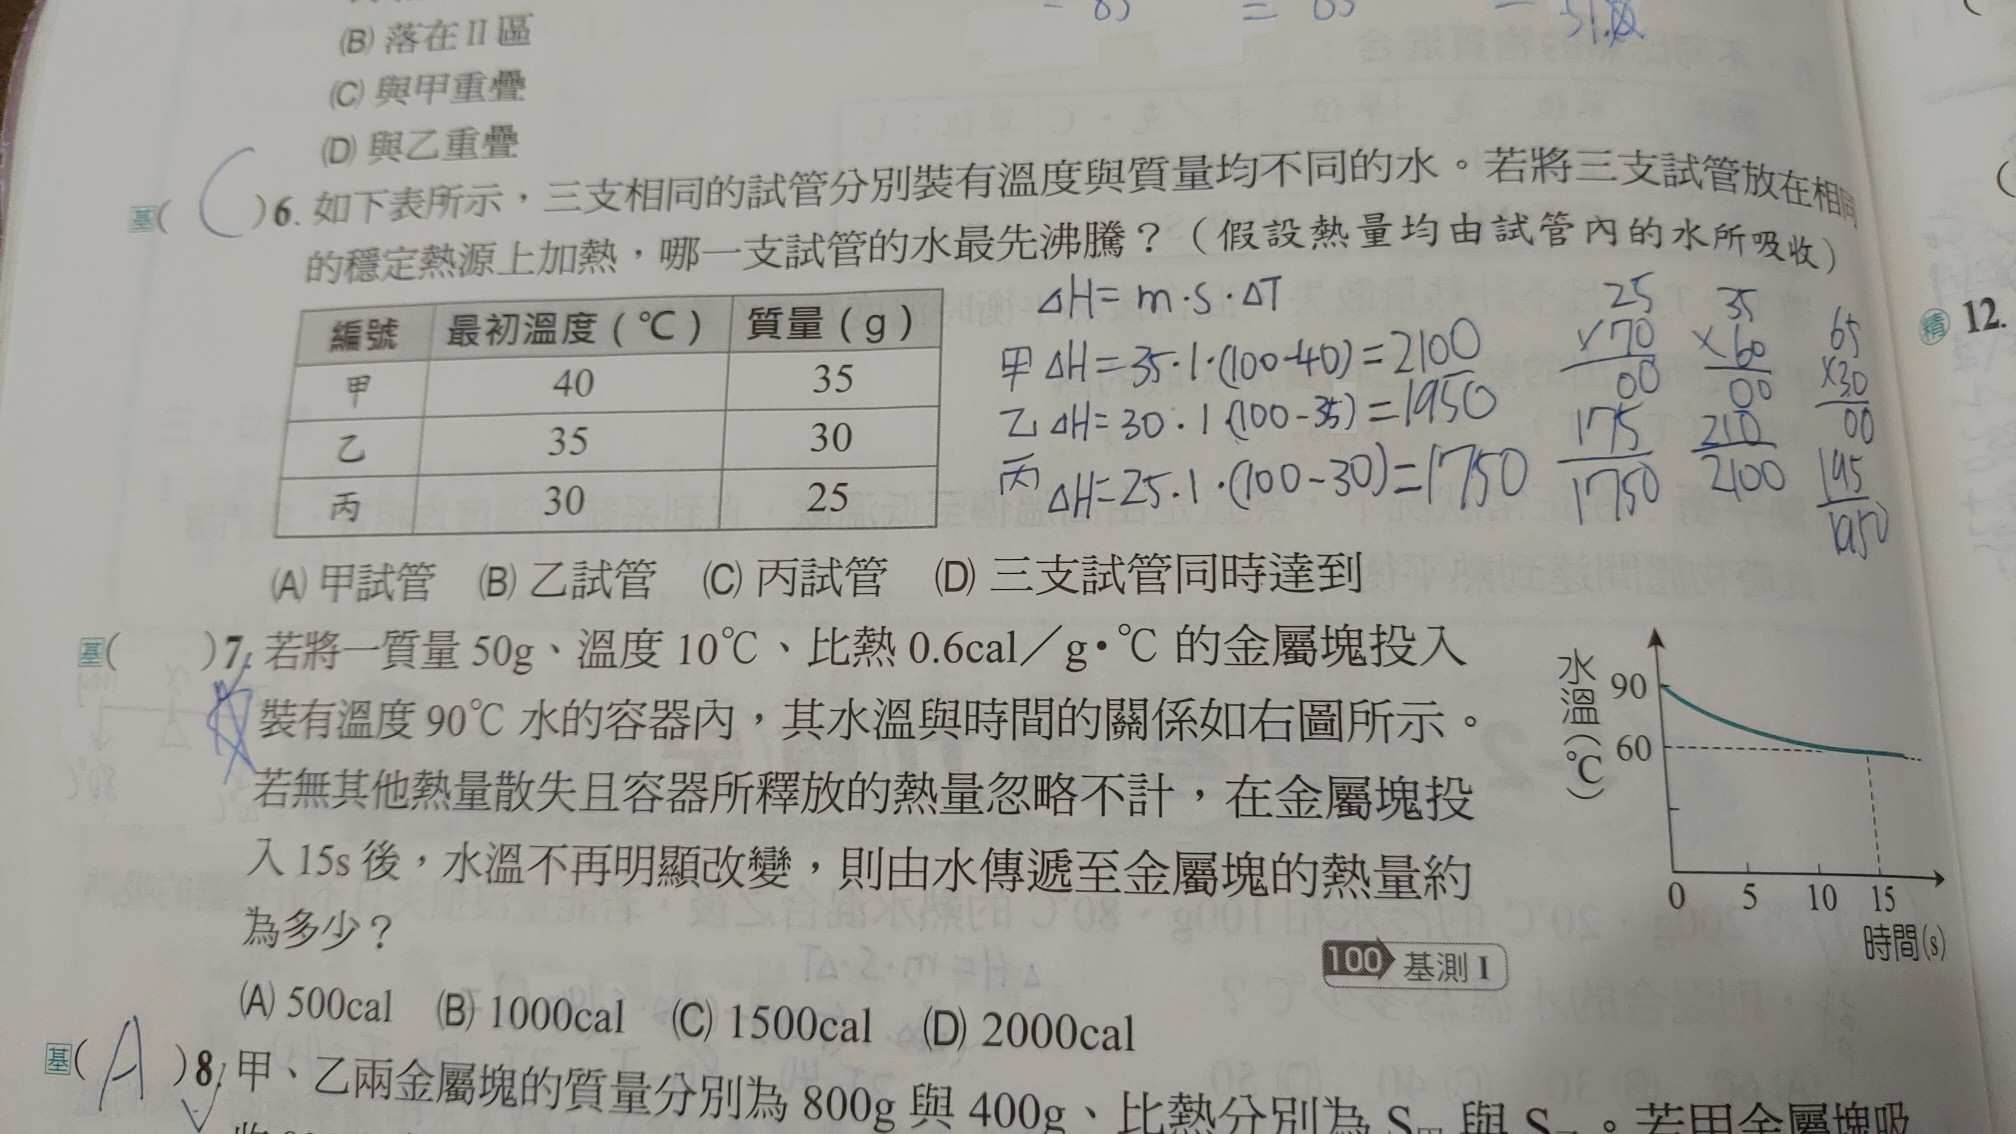 (B) 落在Ⅱ區
(C) 與甲重疊
(D) 與乙重疊
基( C )6. 如下表所示，三支相同的試管分別裝有溫度與質量均不同的水。若將三支試管放在相同
的穩定熱源上加熱，哪一支試管的水最先沸騰？（假設熱量均由試管內的水所吸收）
編號 最初溫度（℃） 質量（g）
甲 40 35
乙 35 30
丙 30 25
△H=m·S·△T
甲 △H=35·1·(100-40)=2100
乙 △H=30·1·(100-35)=1950
丙 △H=25·1·(100-30)=1750
25
×70
00
175
1750
35
×60
00
210
2100
65
×30
00
195
1950
(A) 甲試管 (B) 乙試管 (C) 丙試管 (D) 三支試管同時達到
基( )7. 若將一質量 50g、溫度 10℃、比熱 0.6cal／g•℃ 的金屬塊投入
裝有溫度 90℃ 水的容器內，其水溫與時間的關係如右圖所示。
若無其他熱量散失且容器所釋放的熱量忽略不計，在金屬塊投
入 15s 後，水溫不再明顯改變，則由水傳遞至金屬塊的熱量約
為多少？
100 基測 I
(A) 500cal (B) 1000cal (C) 1500cal (D) 2000cal
水溫(℃)
90
60
0 5 10 15
時間(s)
基( A )8. 甲、乙兩金屬塊的質量分別為 800g 與 400g、比熱分別為 S甲 與 S乙。若甲金屬塊吸
精 12.